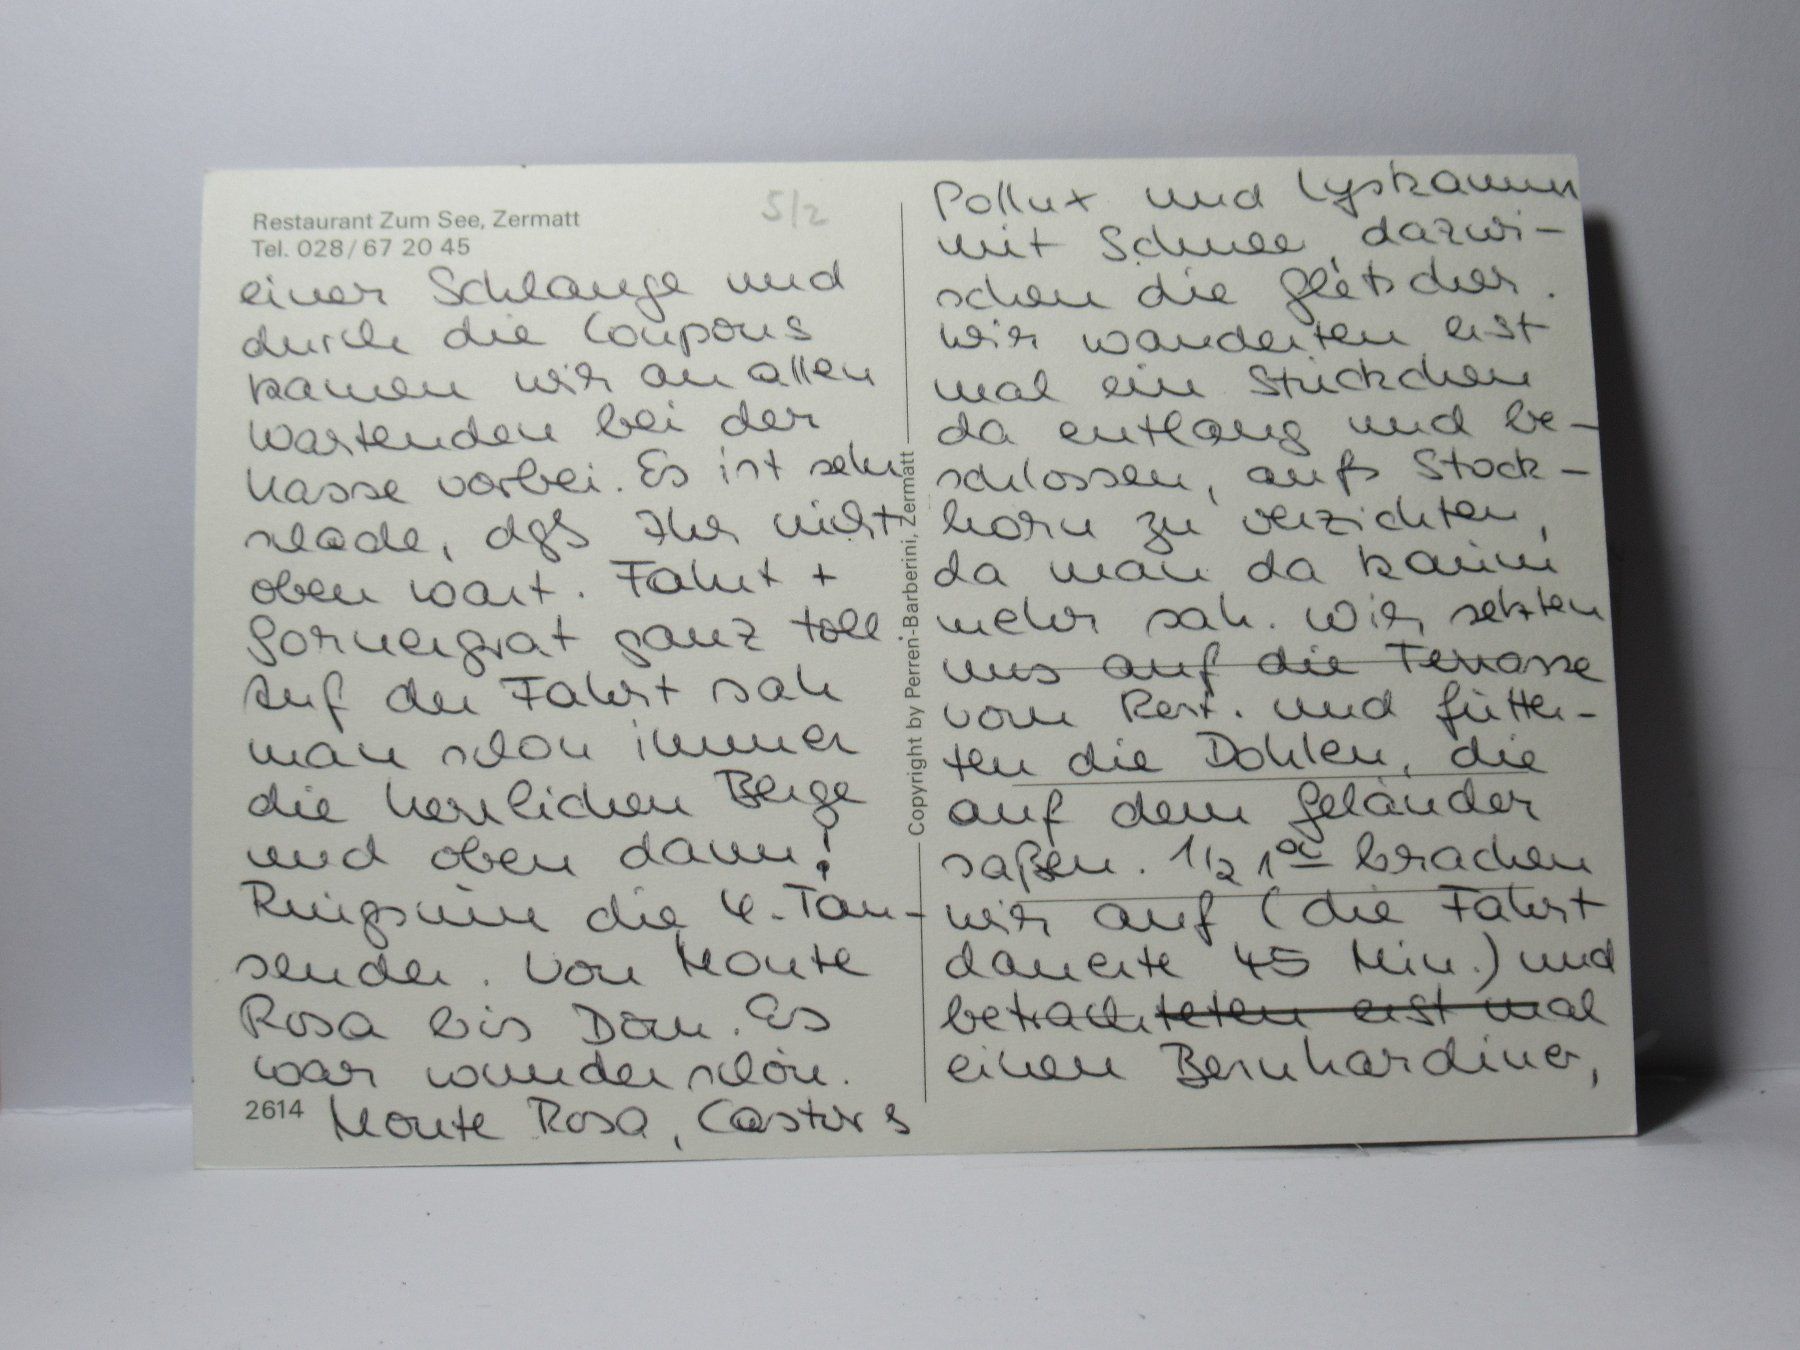 Restaurant Zum See, Zermatt
Tel. 028/67 20 45
5/2
einer Schlange und
durch die Coupons
kamen wir an allen
Wartenden bei der
Kasse vorbei. Es ist sehr
schade, daß Ihr nicht
oben wart. Fahrt +
Gornergrat ganz toll.
Auf der Fahrt sah
man schon immer
die herrlichen Berge
und oben dann!
Ringsum die 4-Tau-
sender. Von Monte
Rosa bis Dom. Es
war wunderschön.
2614 Monte Rosa, Castor &
Copyright by Perren-Barberini, Zermatt
Pollux und Lyskamm
mit Schnee, dazwi-
schen die Gletscher.
Wir wanderten erst
mal ein Stückchen
da entlang und be-
schlossen, aufs Stock-
horn zu verzichten,
da man da kaum
mehr sah. Wir setzten
uns auf die Terrasse
vom Rest. und fütter-
ten die Dohlen, die
auf dem Geländer
saßen. 1/2 1°° brachen
wir auf (die Fahrt
dauerte 45 Min.) und
betrachteten erst mal
einen Bernhardiner,